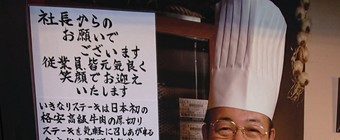 社長からの
お願いで
ございます
従業員皆元気良く
笑顔でお迎え
いたします
いきなりステーキは日本初の
格安高級牛肉の厚切り
ステーキを気軽に召しあがれる